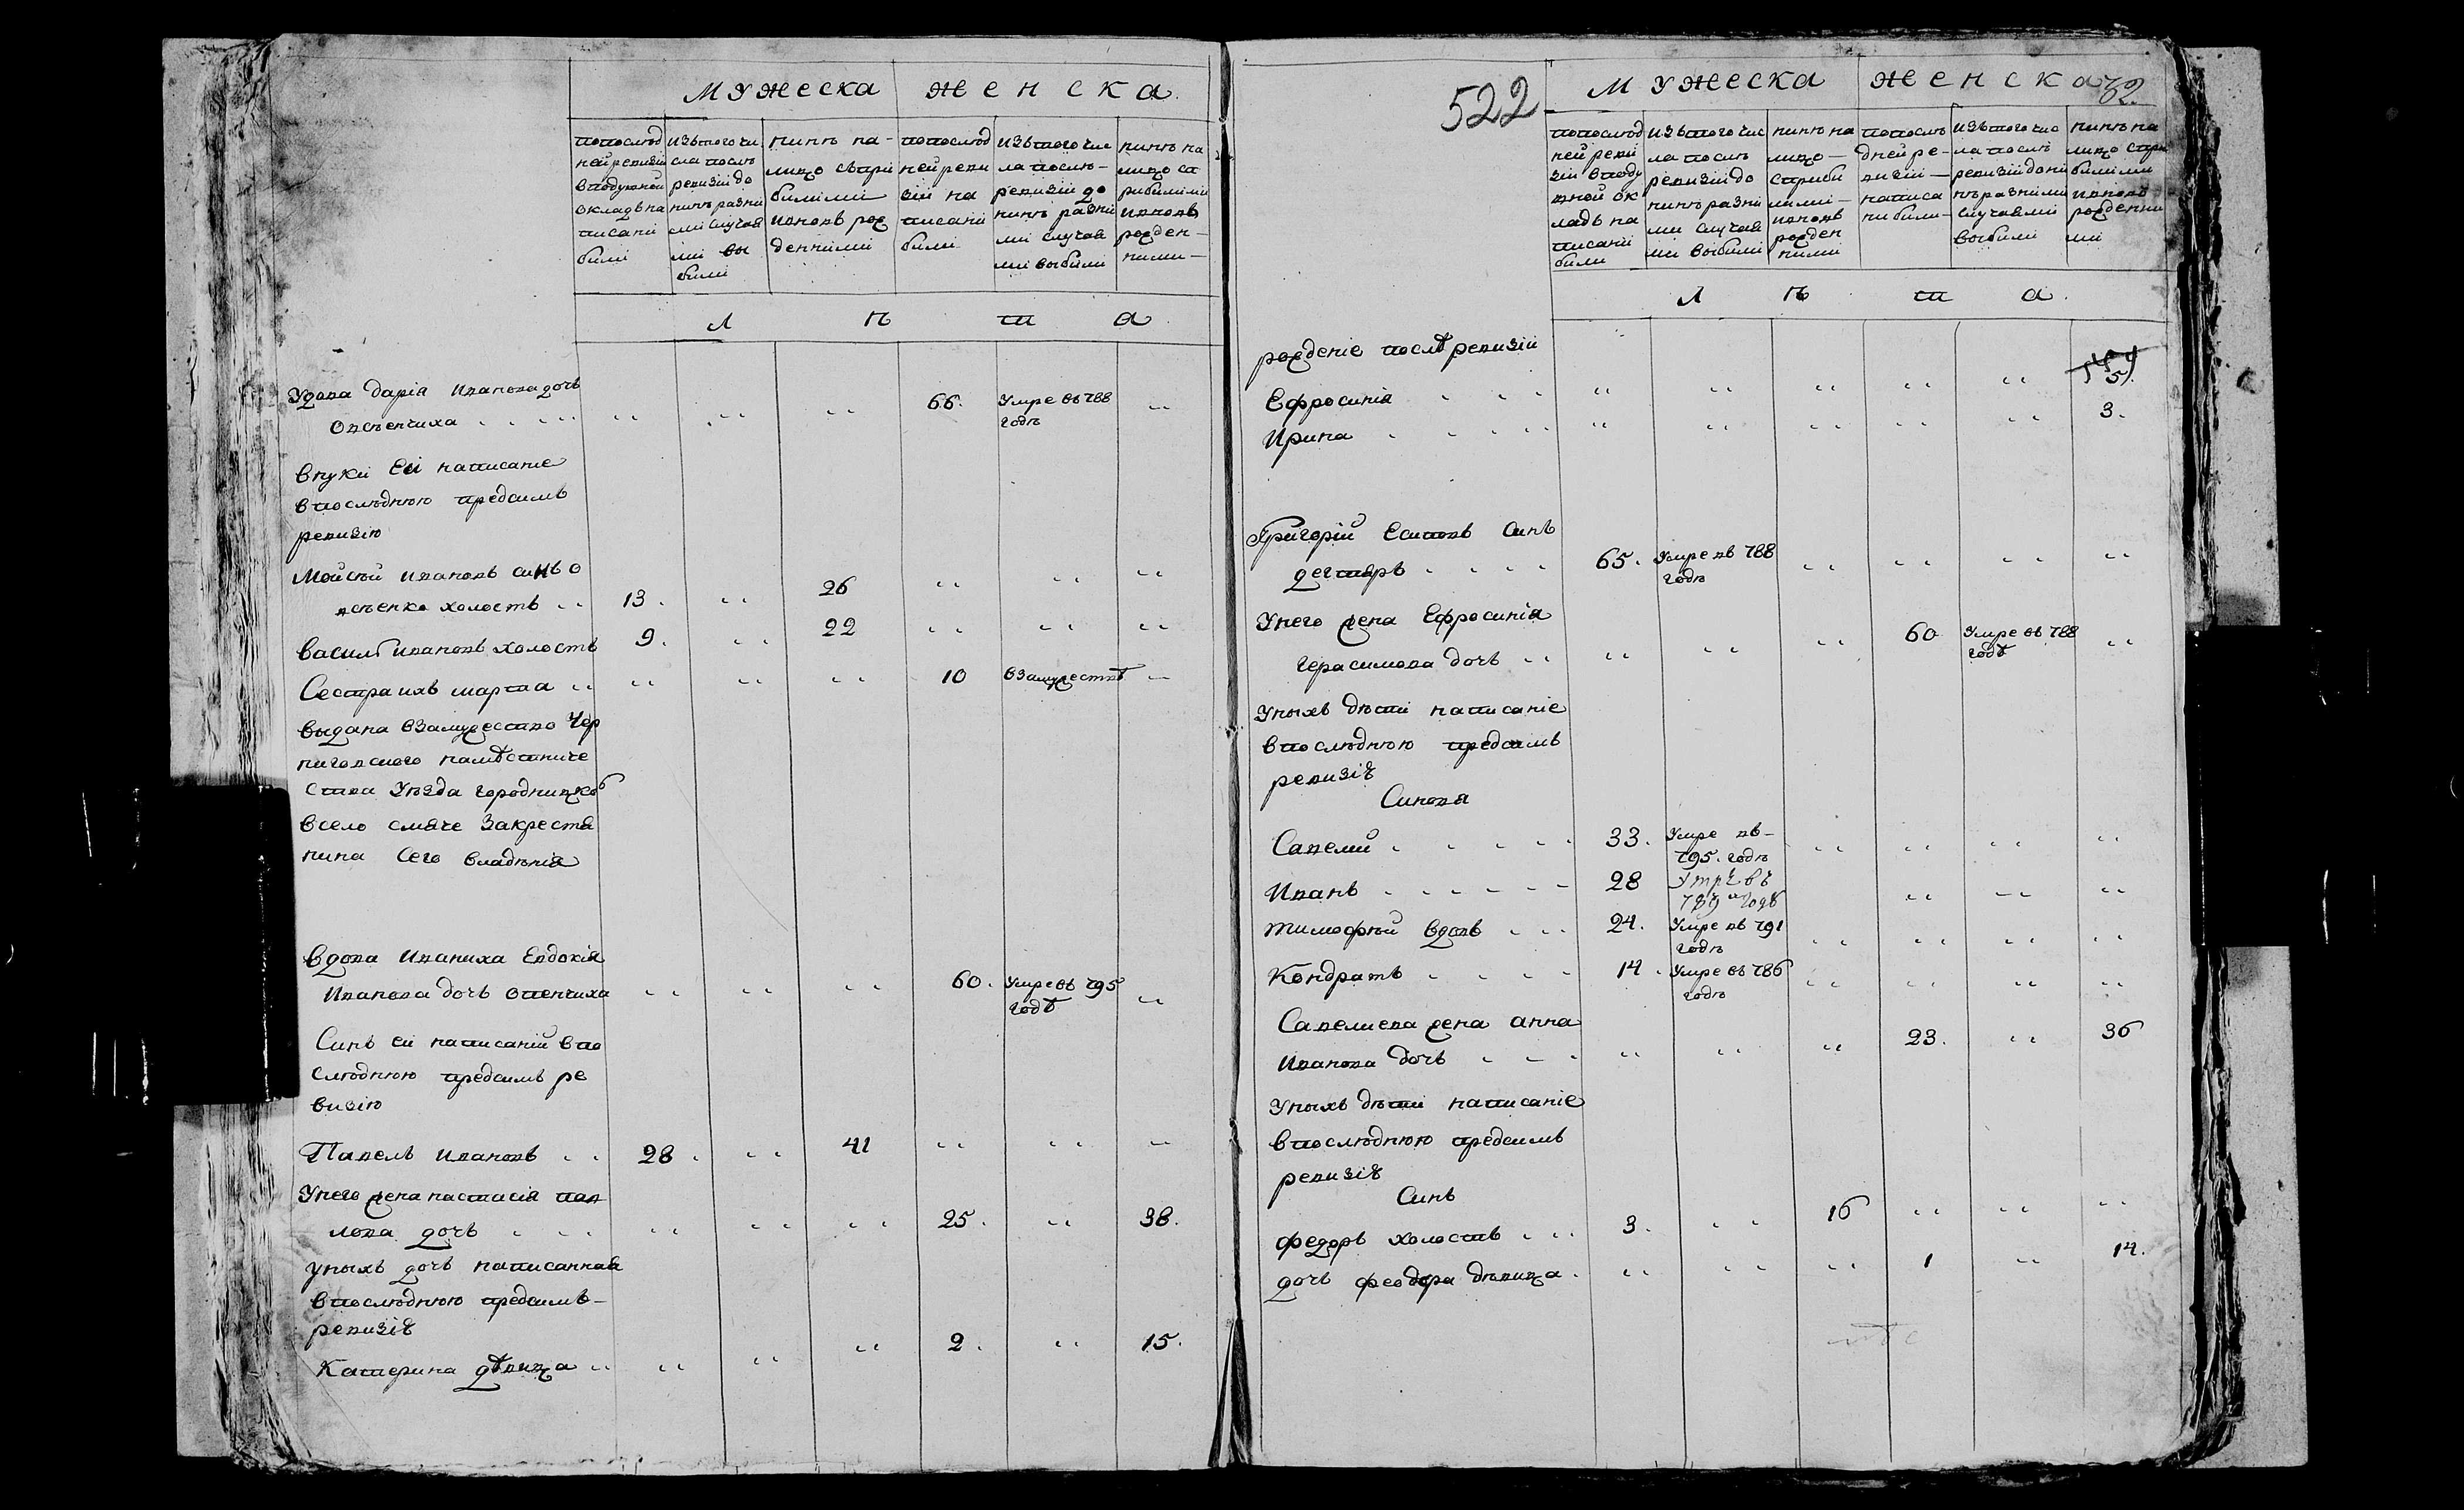 МУЖЕСКА ЖЕНСКА
попослѣд
ней ревизіи
в подушной
окладъ на
писаніи
били
изътого чи
сла послѣ
ревизіи до
нинѣ разни
ми случая
ми вы
били
нинѣ на-
лицо съпри
билими
ивновъ рож
денними
попослѣд
ней реви
зіи на
писаніи
били
изътого чис
ла послѣ-
ревизіи до
нинѣ разни
ми случая
ми выбили
нинѣ на
лицо съ
рибилими
ивновь
рожден-
ними-
Л Ѣ Т А
Удова Дарія Иванова дочь
Овсѣенчиха . . . . 66. Умре въ 788
годѣ
внуки Еи написаніе
впослѣднюю предсимъ
ревизію
Мойсѣй Ивановъ синъ О
всѣенко холостъ . . 13. 26
Василь Ивановъ холостъ 9. 22
Сестра ихъ марфа . . 10 взамужествѣ
выдана взамужество Чер
ниговского намѣстниче
ства Уѣзда городницкого
всело смяче закрестя
нина Сего владѣнія
вдова Иваниха Евдокія
Иванова дочь 60. Умре въ 795
годѣ
Синъ еи написаній впо
слѣднюю предсимъ ре
визію
Павелъ Ивановъ . . 28. 41
Унего жена настасія пав
лова дочь . . . 25. 38.
Уныхъ дочь написанная
впослѣднюю предсимъ-
ревизію
Катерина дѣвица . . 2. 15.
522
МУЖЕСКА ЖЕНСКА 62.
попослѣд
ней реви
зіи в поду
шной ок
ладъ на
писаніи
били
изътого чис
ла послѣ
ревизіи до
нинѣ разни
ми случая
ми выбили
нинѣ на
лицо-
съприби
лими-
ивновь
рожден
ними
попослѣ
дней ре-
визіи-
написа
ни били-
изътого чис
ла послѣ
ревизіи дони
нѣ разними
случаями
выбили
нинѣ на
лицо спри
билими
ивновь
рожденни
ми
Л Ѣ Т А.
рожденіе послѣ ревизіи
Ефросинія . . . 5.
Ирина . . . . 3.
Григорій Есиповъ Синъ
дегтяръ . . . . 65. Умре въ 788
годѣ
Унего жена Ефросинія
Герасимова дочь . . 60 Умре въ 788
годѣ
Уныхъ дѣти написаніе
впослѣднюю предсимъ
ревизію
Синовя
Савелий . . . . . 33. Умре въ-
795. годѣ
Иванъ . . . . . . 28 Умре въ
789м годѣ
тимофѣй вдовъ . . . 24. Умре въ 791
годѣ
Кондратъ . . . . 14. Умре въ 786
годѣ
Савелиева жена анна
Иванова дочь . . . 23. 36
Уныхъ дѣти написаніе
впослѣднюю предсимъ
ревизію
Синъ
Федоръ холостъ . . . 3. 16
дочь феодора дѣвица . 1 14.